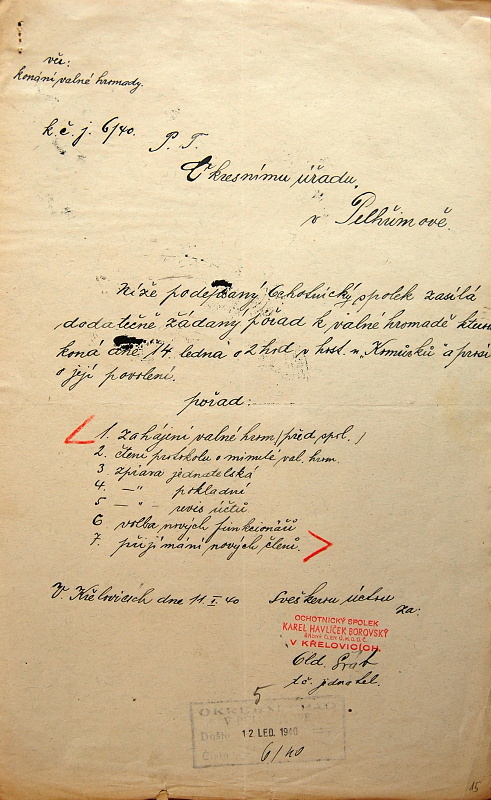 věc:
konání valné hromady.
k č. j. 6/40.
P. T.
Okresnímu úřadu,
v Pelhřimově.
Níže podepsaný Ochotnický spolek zasílá
dodatečně žádaný pořad k valné hromadě kterou
koná dne 14 ledna o 2 hod v host. u
o její povolení.
pořad:
1. Zahájení valné hrom. (před. spol.)
2. čtení protokolu o minulé val. hrom.
3 zpráva jednatelská
4. —"— pokladní
5 —"— revis. účtů
6 volba nových funkcionářů
7. přijímání nových členů.
V Křelovicích dne 11. I. 40
Sveškerou úctou
za:
OCHOTNICKÝ SPOLEK
KAREL HAVLÍČEK BOROVSKÝ
V KŘELOVICÍCH.
tč. jednatel.
5
OKRESNÍ ÚŘAD
Došlo 12. LED. 1940
Číslo 6/40
15